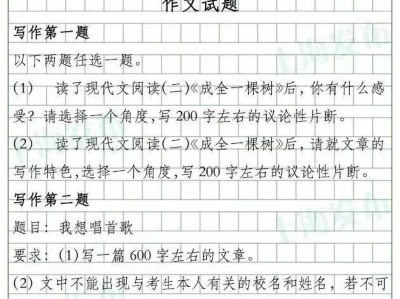 作文试题
写作第一题
以下两题任选一题。
(1) 读了现代文阅读(二)《成全一棵树》后,你有什么感
受?请选择一个角度,写 200 字左右的议论性片断。
(2) 读了现代文阅读(二)《成全一棵树》后,请就文章的
写作特色,选择一个角度,写 200 字左右的议论性片断。
写作第二题
题目:我想唱首歌
要求:(1)写一篇 600 字左右的文章。
(2) 文中不能出现与考生本人有关的校名和姓名,若不可
上海发布
上海发布